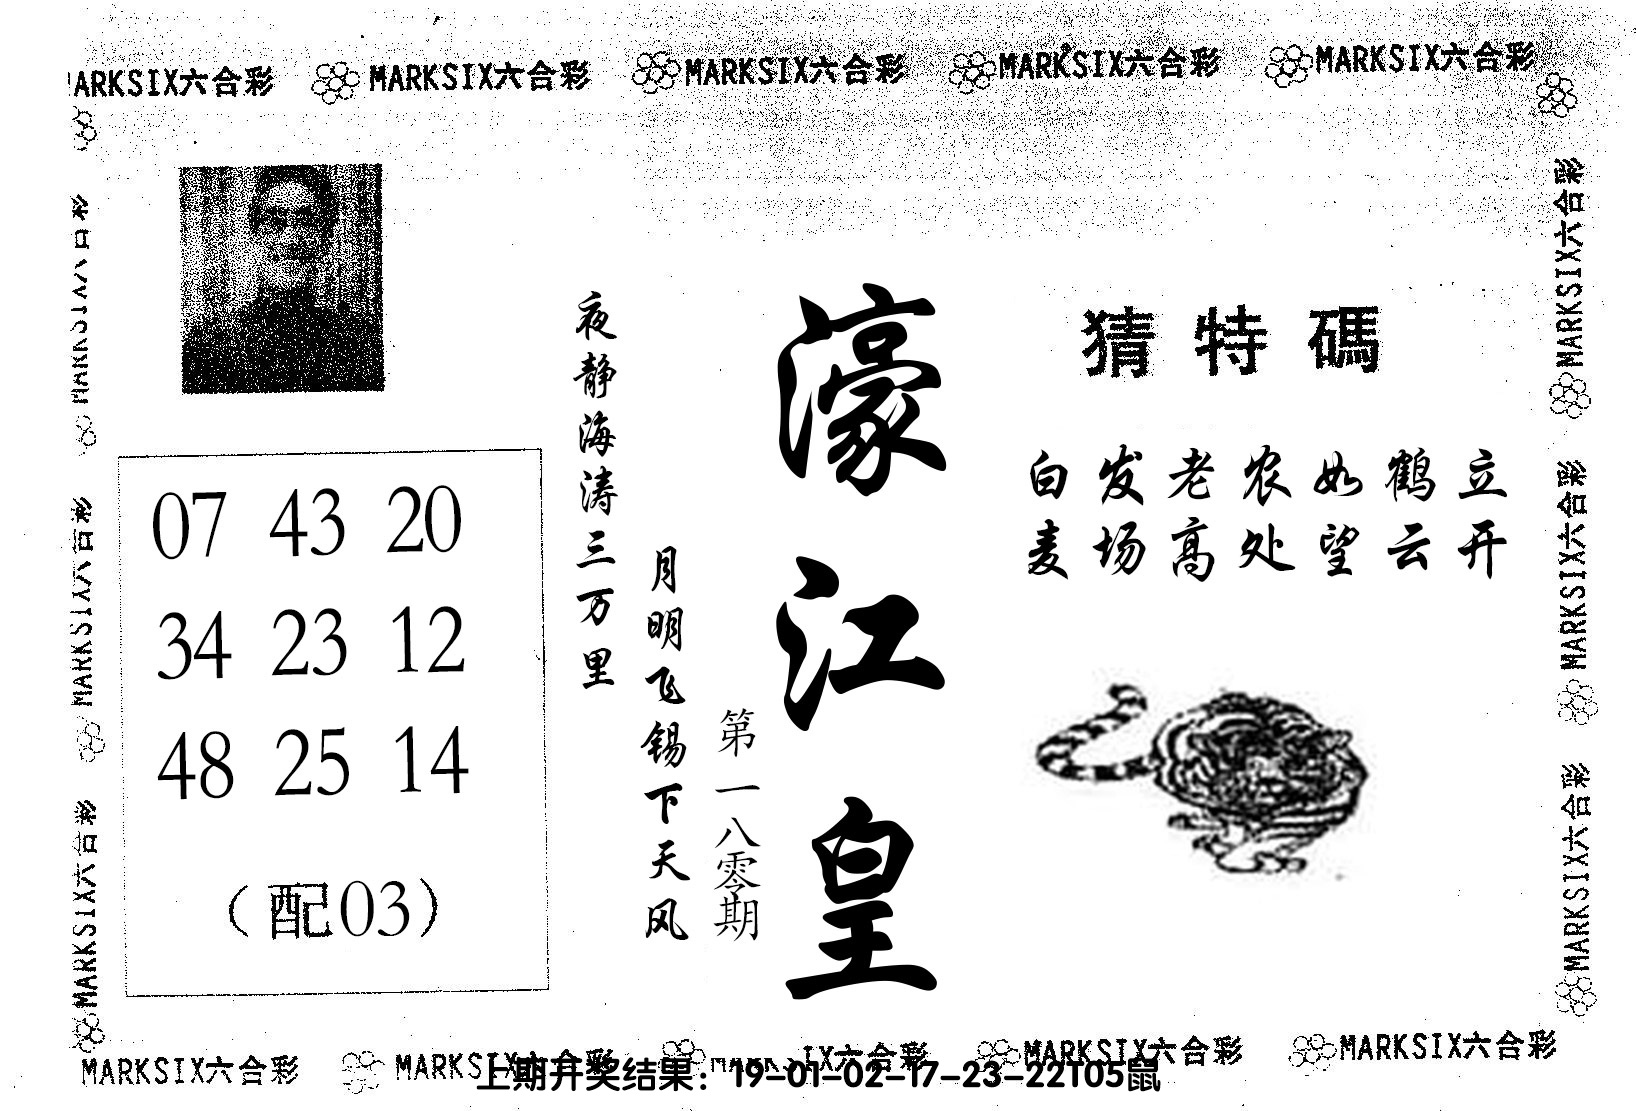 MARKSIX六合彩 MARKSIX六合彩 MARKSIX六合彩 MARKSIX六合彩
猜特碼
白发老农如鹤立
麦场高处望云开
濠江皇
第一八零期
夜静海涛三万里
月明飞锡下天风
07 43 20
34 23 12
48 25 14
(配03)
MARKSIX六合彩
MARKSIX六合彩
MARKSIX六合彩
MARKSIX六合彩
MARKSIX六合彩
MARKSIX六合彩 MARKSIX六合彩 MARKSIX六合彩 MARKSIX六合彩
上期开奖结果：19-01-02-17-23-22T05鼠